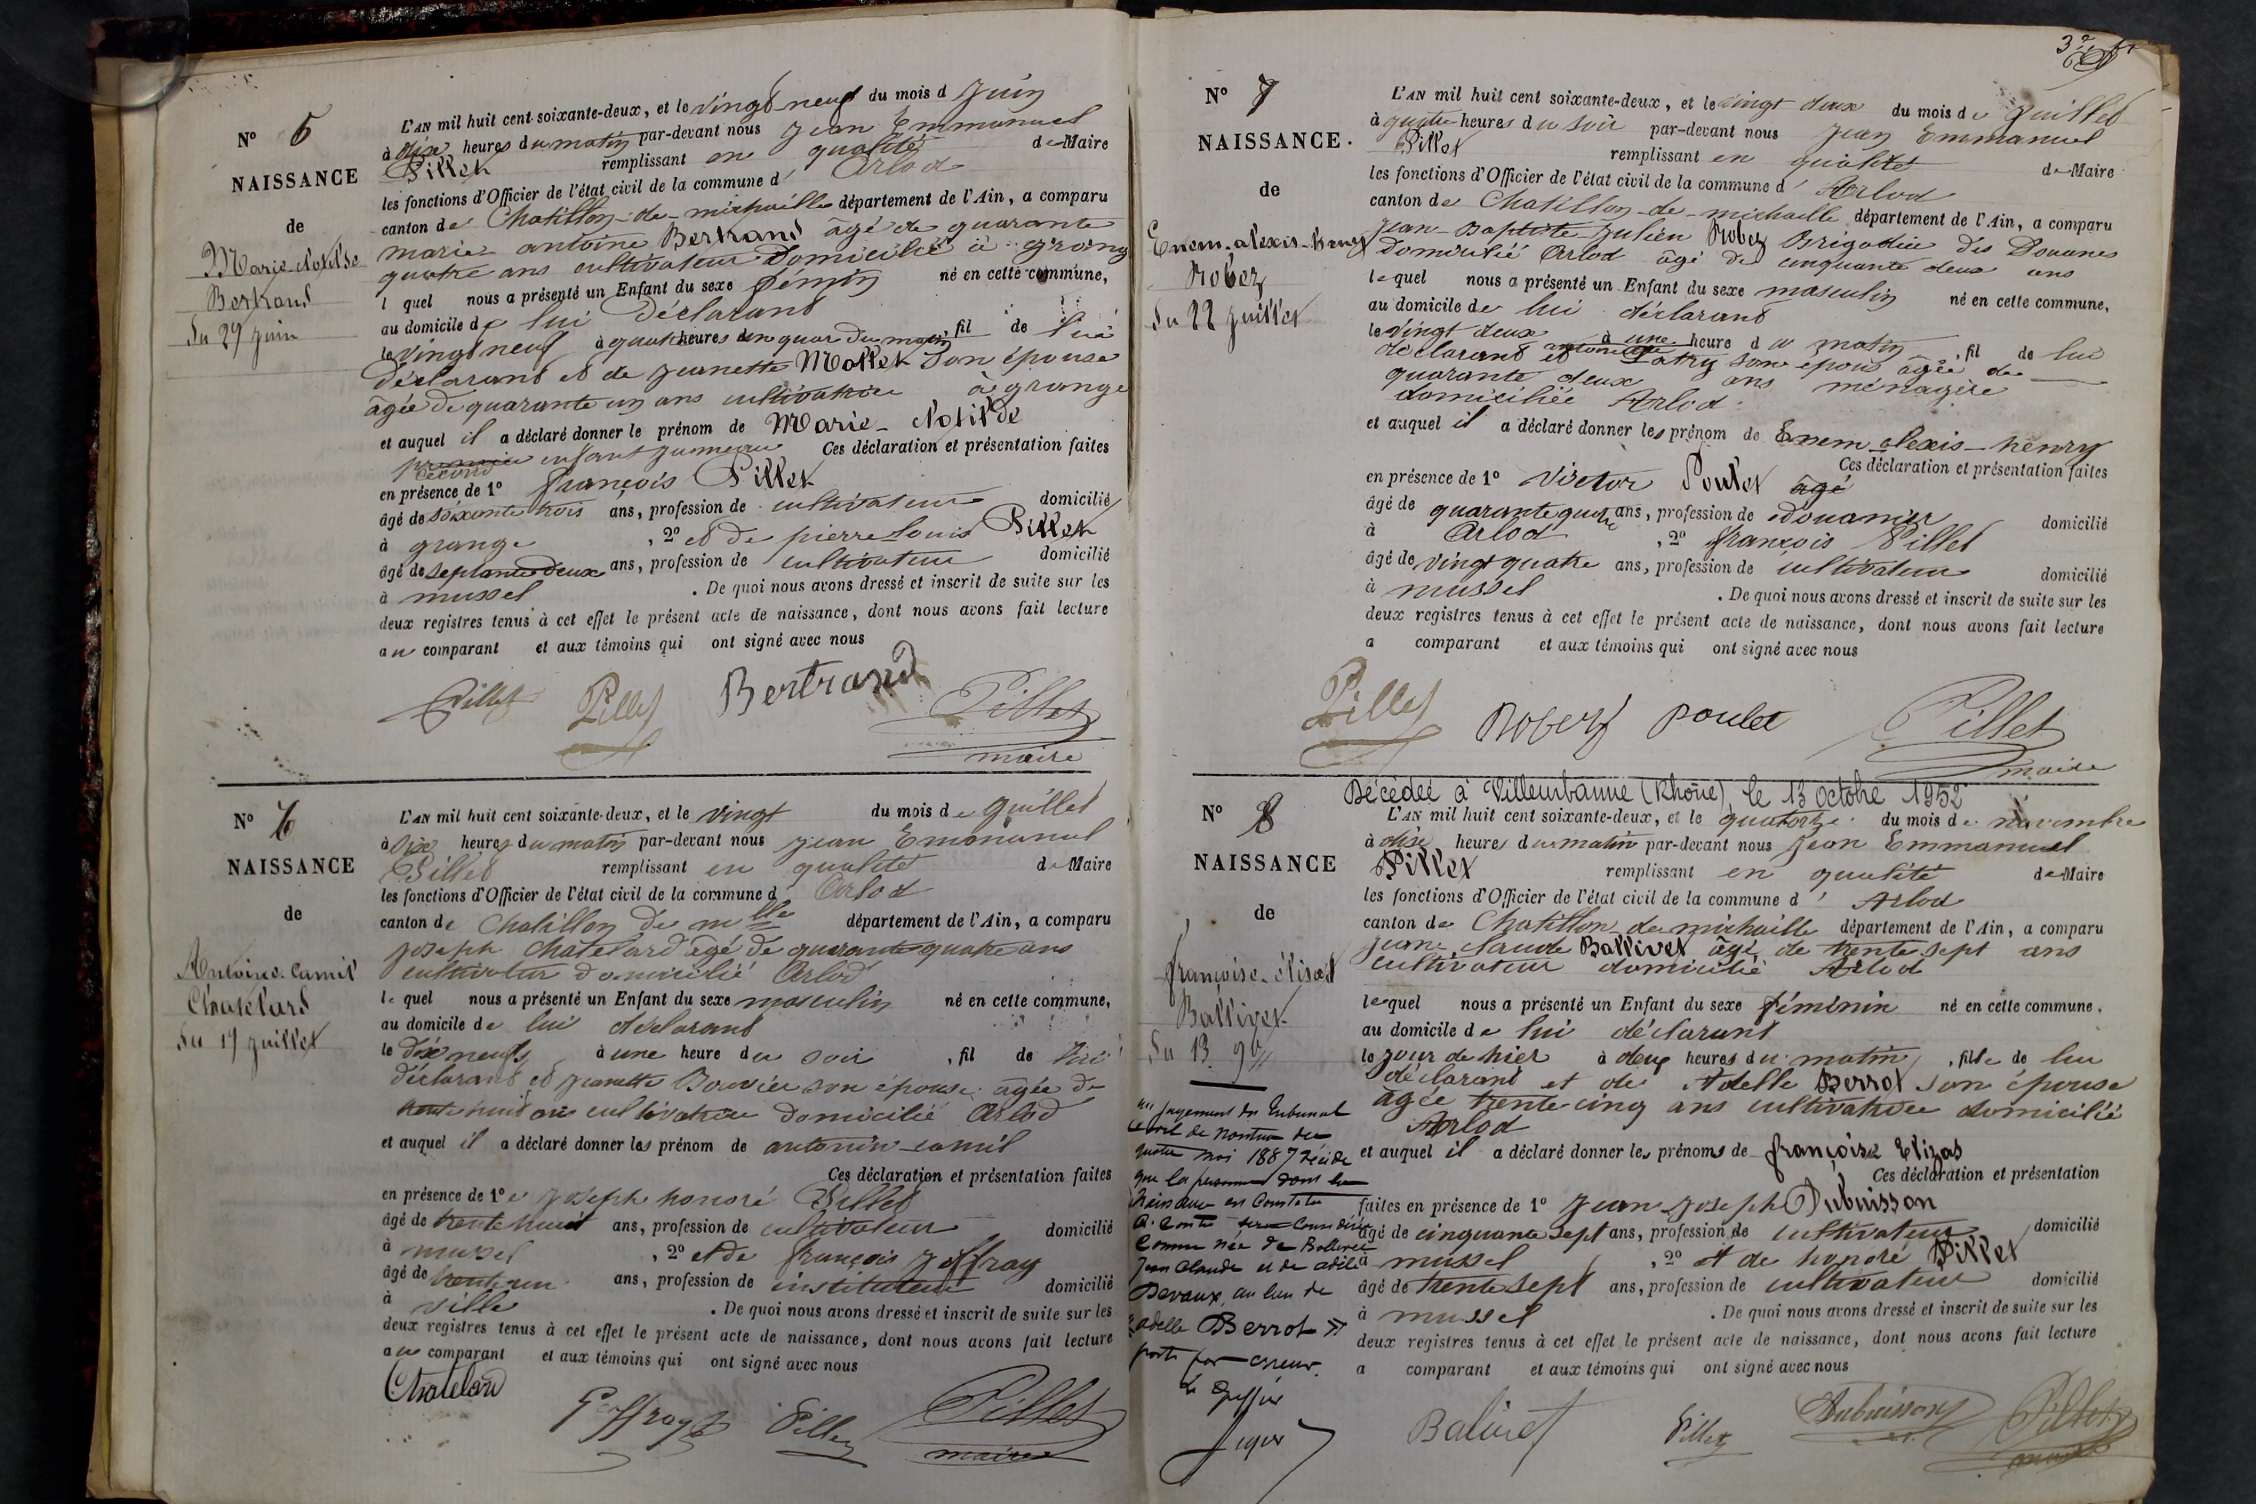 N° 5
NAISSANCE
de
Marie-Clotilde
Bertrand
du 29 juin
L'AN mil huit cent soixante-deux, et le vingt neuf du mois d juin
à dix heures du matin par-devant nous Jean Emmanuel
Pillet remplissant en qualité de Maire
les fonctions d'Officier de l'état civil de la commune d' Arlod
canton de Chatillon-de-michaille département de l'Ain, a comparu
marie antoine Bertrand âgé de quarante
quatre ans cultivateur domicilié à grange
l quel nous a présenté un Enfant du sexe féminin né en cette commune,
au domicile de lui déclarant
le vingt neuf à quatre heures du matin, fil de lui
déclarant et de jeanette Mallet son épouse
âgée de quarante un ans cultivatrice à grange
et auquel il a déclaré donner le prénom de Marie-Clotilde
second enfant jumeau Ces déclaration et présentation faites
en présence de 1° françois Pillet
âgé de soixante trois ans, profession de cultivateur domicilié
à grange, 2° et de pierre Louis Pillet
âgé de septante deux ans, profession de cultivateur domicilié
à mussel. De quoi nous avons dressé et inscrit de suite sur les
deux registres tenus à cet effet le présent acte de naissance, dont nous avons fait lecture
au comparant et aux témoins qui ont signé avec nous
Pillet Pillet Bertrand Pillet
maire
N° 6
NAISSANCE
de
Antoine-Camil
Chatelard
du 19 juillet
L'AN mil huit cent soixante-deux, et le vingt du mois de juillet
à dix heures du matin par-devant nous jean Emmanuel
Pillet remplissant en qualité de Maire
les fonctions d'Officier de l'état civil de la commune d Arlod
canton de Chatillon de mlle département de l'Ain, a comparu
joseph Chatelard âgé de quarante quatre ans
cultivateur domicilié Arlod
le quel nous a présenté un Enfant du sexe masculin né en cette commune,
au domicile de lui déclarant
le dix neuf, à une heure du soir, fil de lui
déclarant et jeanette Bouvier son épouse âgée de
trente huit ans cultivatrice domicilié Arlod
et auquel il a déclaré donner les prénom de antonin-camil
Ces déclaration et présentation faites
en présence de 1° joseph honoré Pillet
âgé de trente huit ans, profession de cultivateur domicilié
à mussel, 2° et de françois jeffray
âgé de trente un ans, profession de instituteur domicilié
à ville. De quoi nous avons dressé et inscrit de suite sur les
deux registres tenus à cet effet le présent acte de naissance, dont nous avons fait lecture
au comparant et aux témoins qui ont signé avec nous
Chatelard Geffray Pillet Pillet
maire
N° 7
NAISSANCE.
de
Enem-alexis-henry
Robez
du 22 juillet
L'AN mil huit cent soixante-deux, et le vingt deux du mois de juillet
à quatre heures du soir par-devant nous jean Emmanuel
Pillet remplissant en qualité de Maire
les fonctions d'Officier de l'état civil de la commune d' Arlod
canton de Chatillon-de-michaille département de l'Ain, a comparu
jean-Baptiste julien Robez Brigadier des Douanes
domicilié Arlod âgé de cinquante deux ans
le quel nous a présenté un Enfant du sexe masculin né en cette commune,
au domicile de lui déclarant
le vingt deux à une heure du matin, fil de lui
déclarant et antoinette Patry son épouse âgée de
quarante deux ans ménagère
domiciliée Arlod
et auquel il a déclaré donner les prénom de Enem-alexis-henry
Ces déclaration et présentation faites
en présence de 1° Victor Poulet âgé
âgé de quarante quatre ans, profession de douanier domicilié
à Arlod, 2° françois Pillet
âgé de vingt quatre ans, profession de cultivateur domicilié
à mussel. De quoi nous avons dressé et inscrit de suite sur les
deux registres tenus à cet effet le présent acte de naissance, dont nous avons fait lecture
a comparant et aux témoins qui ont signé avec nous
Pillet Robez Poulet Pillet
maire
Décédée à Villeurbanne (Rhône), le 13 octobre 1952
N° 8
NAISSANCE
de
françoise-élisad
Ballivet
du 13 9b
L'AN mil huit cent soixante-deux, et le quatorze du mois de novembre
à dix heures du matin par-devant nous jean Emmanuel
Pillet remplissant en qualité de Maire
les fonctions d'Officier de l'état civil de la commune d' Arlod
canton de Chatillon-de-michaille département de l'Ain, a comparu
jean claude Ballivet âgé de trente sept ans
cultivateur domicilié Arlod
le quel nous a présenté un Enfant du sexe féminin né en cette commune.
au domicile de lui déclarant
le jour de hier à deux heures du matin, fille de lui
déclarant et de Adelle Berrot son épouse
âgée trente cinq ans cultivatrice domicilié
Arlod
et auquel il a déclaré donner les prénoms de françoise Elizas
Ces déclaration et présentation
faites en présence de 1° jean-joseph Dubuisson
âgé de cinquante sept ans, profession de cultivateur domicilié
à mussel, 2° et de honoré Pillet
âgé de trente sept ans, profession de cultivateur domicilié
à mussel. De quoi nous avons dressé et inscrit de suite sur les
deux registres tenus à cet effet le présent acte de naissance, dont nous avons fait lecture
a comparant et aux témoins qui ont signé avec nous
Balivet Pillet Dubuisson Pillet
maire
jugement du Tribunal
civil de Nantua du
quatre mai 1887 décide
que la personne dont la
naissance est constatée
ci-contre sera considérée
comme née de Ballivet
Jean Claude et de adèle
Devaux, au lieu de
«adelle Berrot»
porté par erreur.
Le Greffier